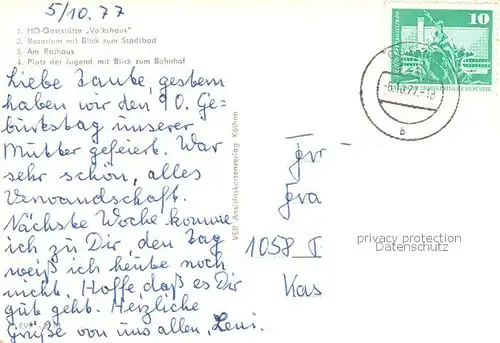 5/10.77
1. HO-Gaststätte „Volkshaus"
2. Rosarium mit Blick zum Stadtbad
3. Am Rathaus
4. Platz der Jugend mit Blick zum Bahnhof
Liebe Tante, gestern
haben wir den 90. Ge-
burtstag unserer
Mutter gefeiert. War
sehr schön, alles
Verwandschaft.
Nächste Woche komme
ich zu Dir, den Tag
weiß ich heute noch
nicht. Hoffe, daß es Dir
gut geht. Herzliche
Grüße von uns allen, Leni.
VEB Ansichtskartenverlag Köthen
10
-6.10.77.-12
b
Gra
1058
Kas
privacy protection
Datenschutz